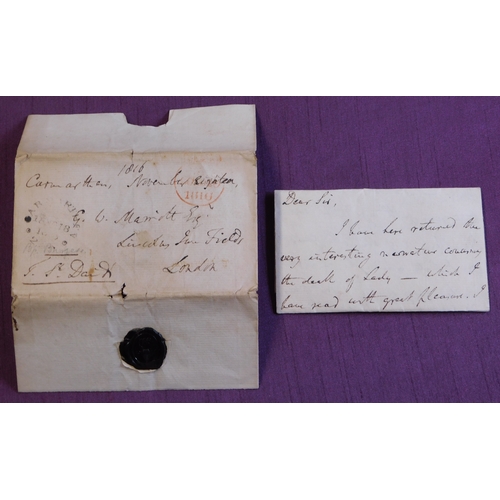 1816
Carmarthen, November eighteen,
G. W. Marriott Esqr
Lincolns Inn Fields
London
T. St. Davids
Dear Sir,
I have here returned the
very interesting narrative concerning
the death of Lady — which I
have read with great pleasure. I